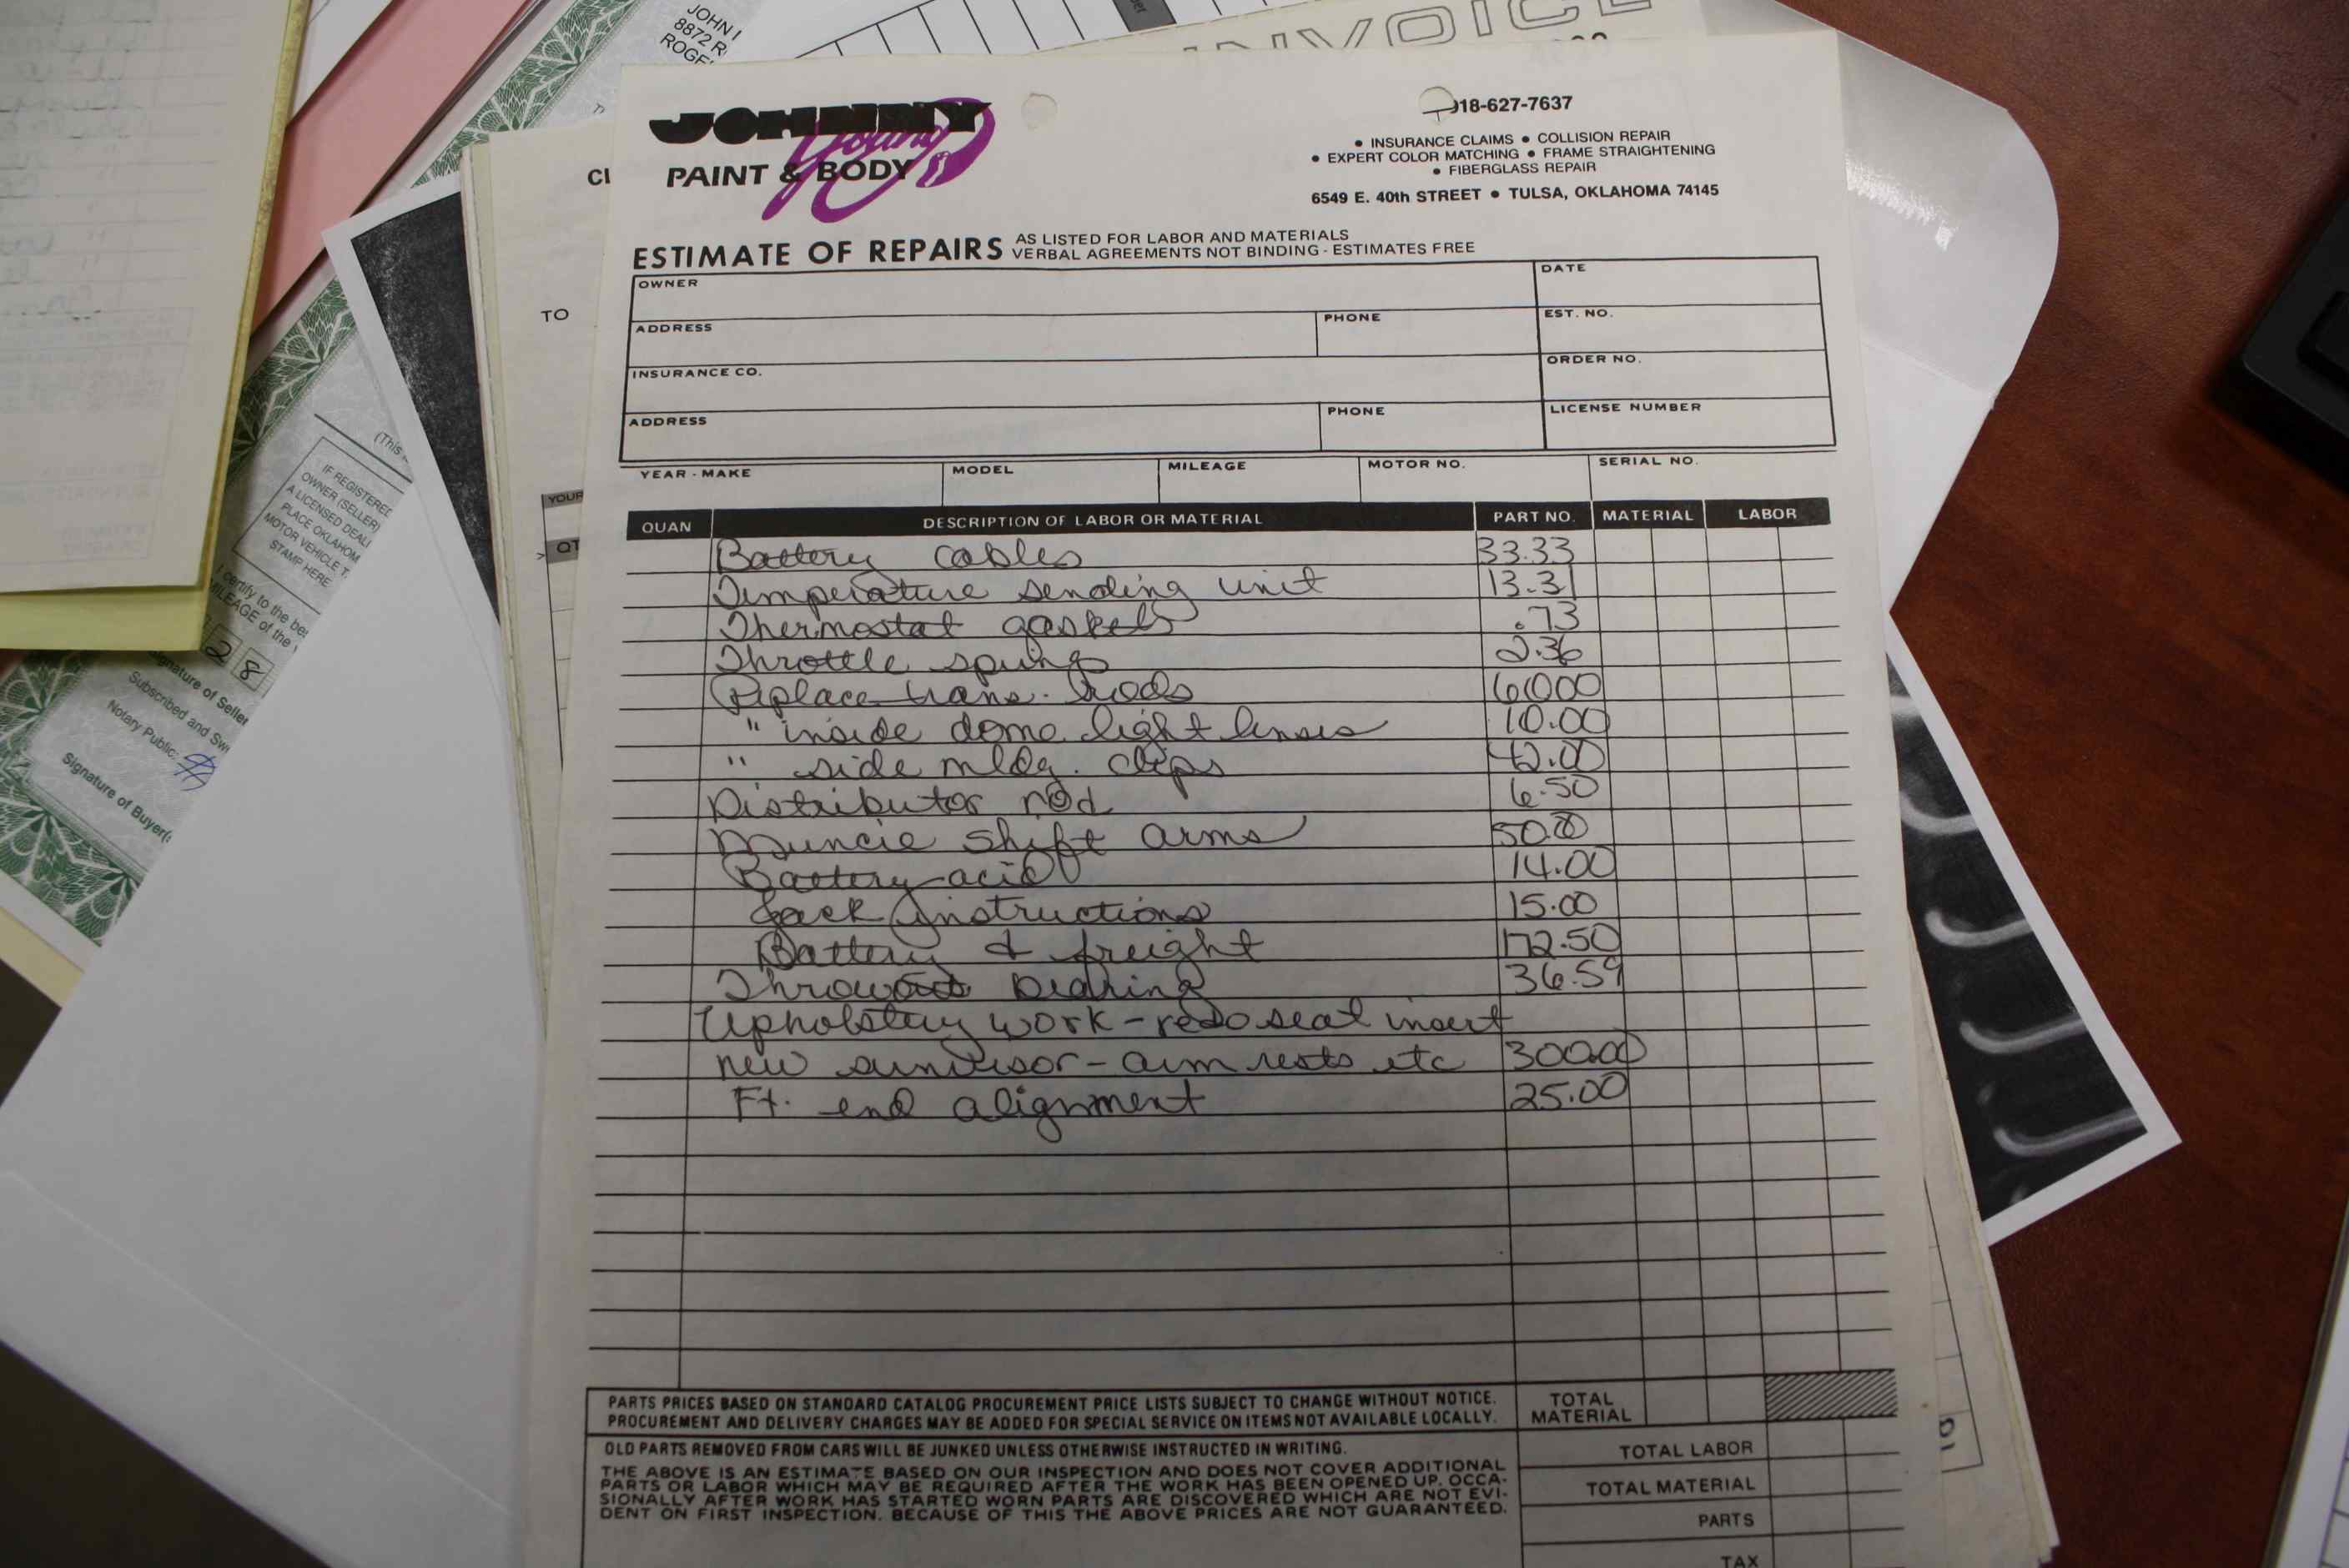 JOHN
8872 R
ROGE
INVOICE
JOHNNY
Young
PAINT & BODY
918-627-7637
• INSURANCE CLAIMS • COLLISION REPAIR
• EXPERT COLOR MATCHING • FRAME STRAIGHTENING
• FIBERGLASS REPAIR
6549 E. 40th STREET • TULSA, OKLAHOMA 74145
ESTIMATE OF REPAIRS AS LISTED FOR LABOR AND MATERIALS
VERBAL AGREEMENTS NOT BINDING - ESTIMATES FREE
OWNER DATE
ADDRESS PHONE EST. NO.
INSURANCE CO. ORDER NO.
ADDRESS PHONE LICENSE NUMBER
YEAR - MAKE MODEL MILEAGE MOTOR NO. SERIAL NO.
QUAN DESCRIPTION OF LABOR OR MATERIAL PART NO. MATERIAL LABOR
Battery cables 33.33
Temperature sending unit 13.31
Thermostat gaskets .73
Throttle springs 2.36
Replace trans. 60.00
" inside dome light lenses 10.00
" side mldg. clips 42.00
Distributor rod 6.50
Muncie shift arms 50.00
Battery acid 14.00
Jack instructions 15.00
Battery & freight 172.50
Throwout bearing 36.59
Upholstery work - redo seat insert
new sunvisor - arm rests etc 300.00
Ft. end alignment 25.00
PARTS PRICES BASED ON STANDARD CATALOG PROCUREMENT PRICE LISTS SUBJECT TO CHANGE WITHOUT NOTICE.
PROCUREMENT AND DELIVERY CHARGES MAY BE ADDED FOR SPECIAL SERVICE ON ITEMS NOT AVAILABLE LOCALLY.
TOTAL
MATERIAL
OLD PARTS REMOVED FROM CARS WILL BE JUNKED UNLESS OTHERWISE INSTRUCTED IN WRITING.
THE ABOVE IS AN ESTIMATE BASED ON OUR INSPECTION AND DOES NOT COVER ADDITIONAL
PARTS OR LABOR WHICH MAY BE REQUIRED AFTER THE WORK HAS BEEN OPENED UP. OCCA-
SIONALLY AFTER WORK HAS STARTED WORN PARTS ARE DISCOVERED WHICH ARE NOT EVI-
DENT ON FIRST INSPECTION. BECAUSE OF THIS THE ABOVE PRICES ARE NOT GUARANTEED.
TOTAL LABOR
TOTAL MATERIAL
PARTS
TAX
TO
YOUR
QT
(This
IF REGISTERED
OWNER (SELLER)
A LICENSED DEAL
PLACE OKLAHOM
MOTOR VEHICLE T
STAMP HERE
I certify to the be
MILEAGE of the
28
Signature of Seller
Subscribed and Sw
Notary Public:
Signature of Buyer(